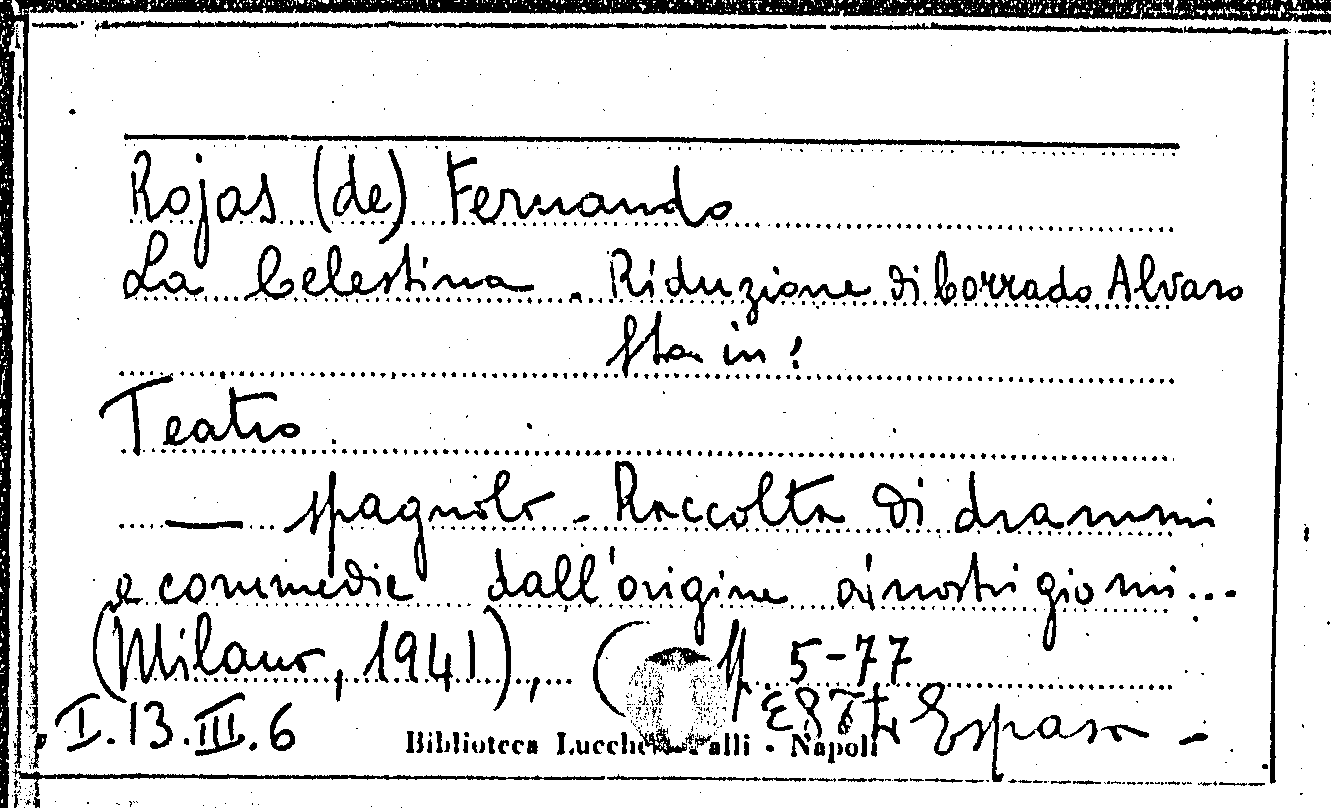 Rojas (de) Fernando
La Celestina. Riduzione di Corrado Alvaro
Sta in:
Teatro
— spagnolo - Raccolta di drammi
e commedie dall'origine ai nostri giorni...
(Milano, 1941), ( pp. 5-77
I.13.III.6
Biblioteca Lucchesi Palli - Napoli